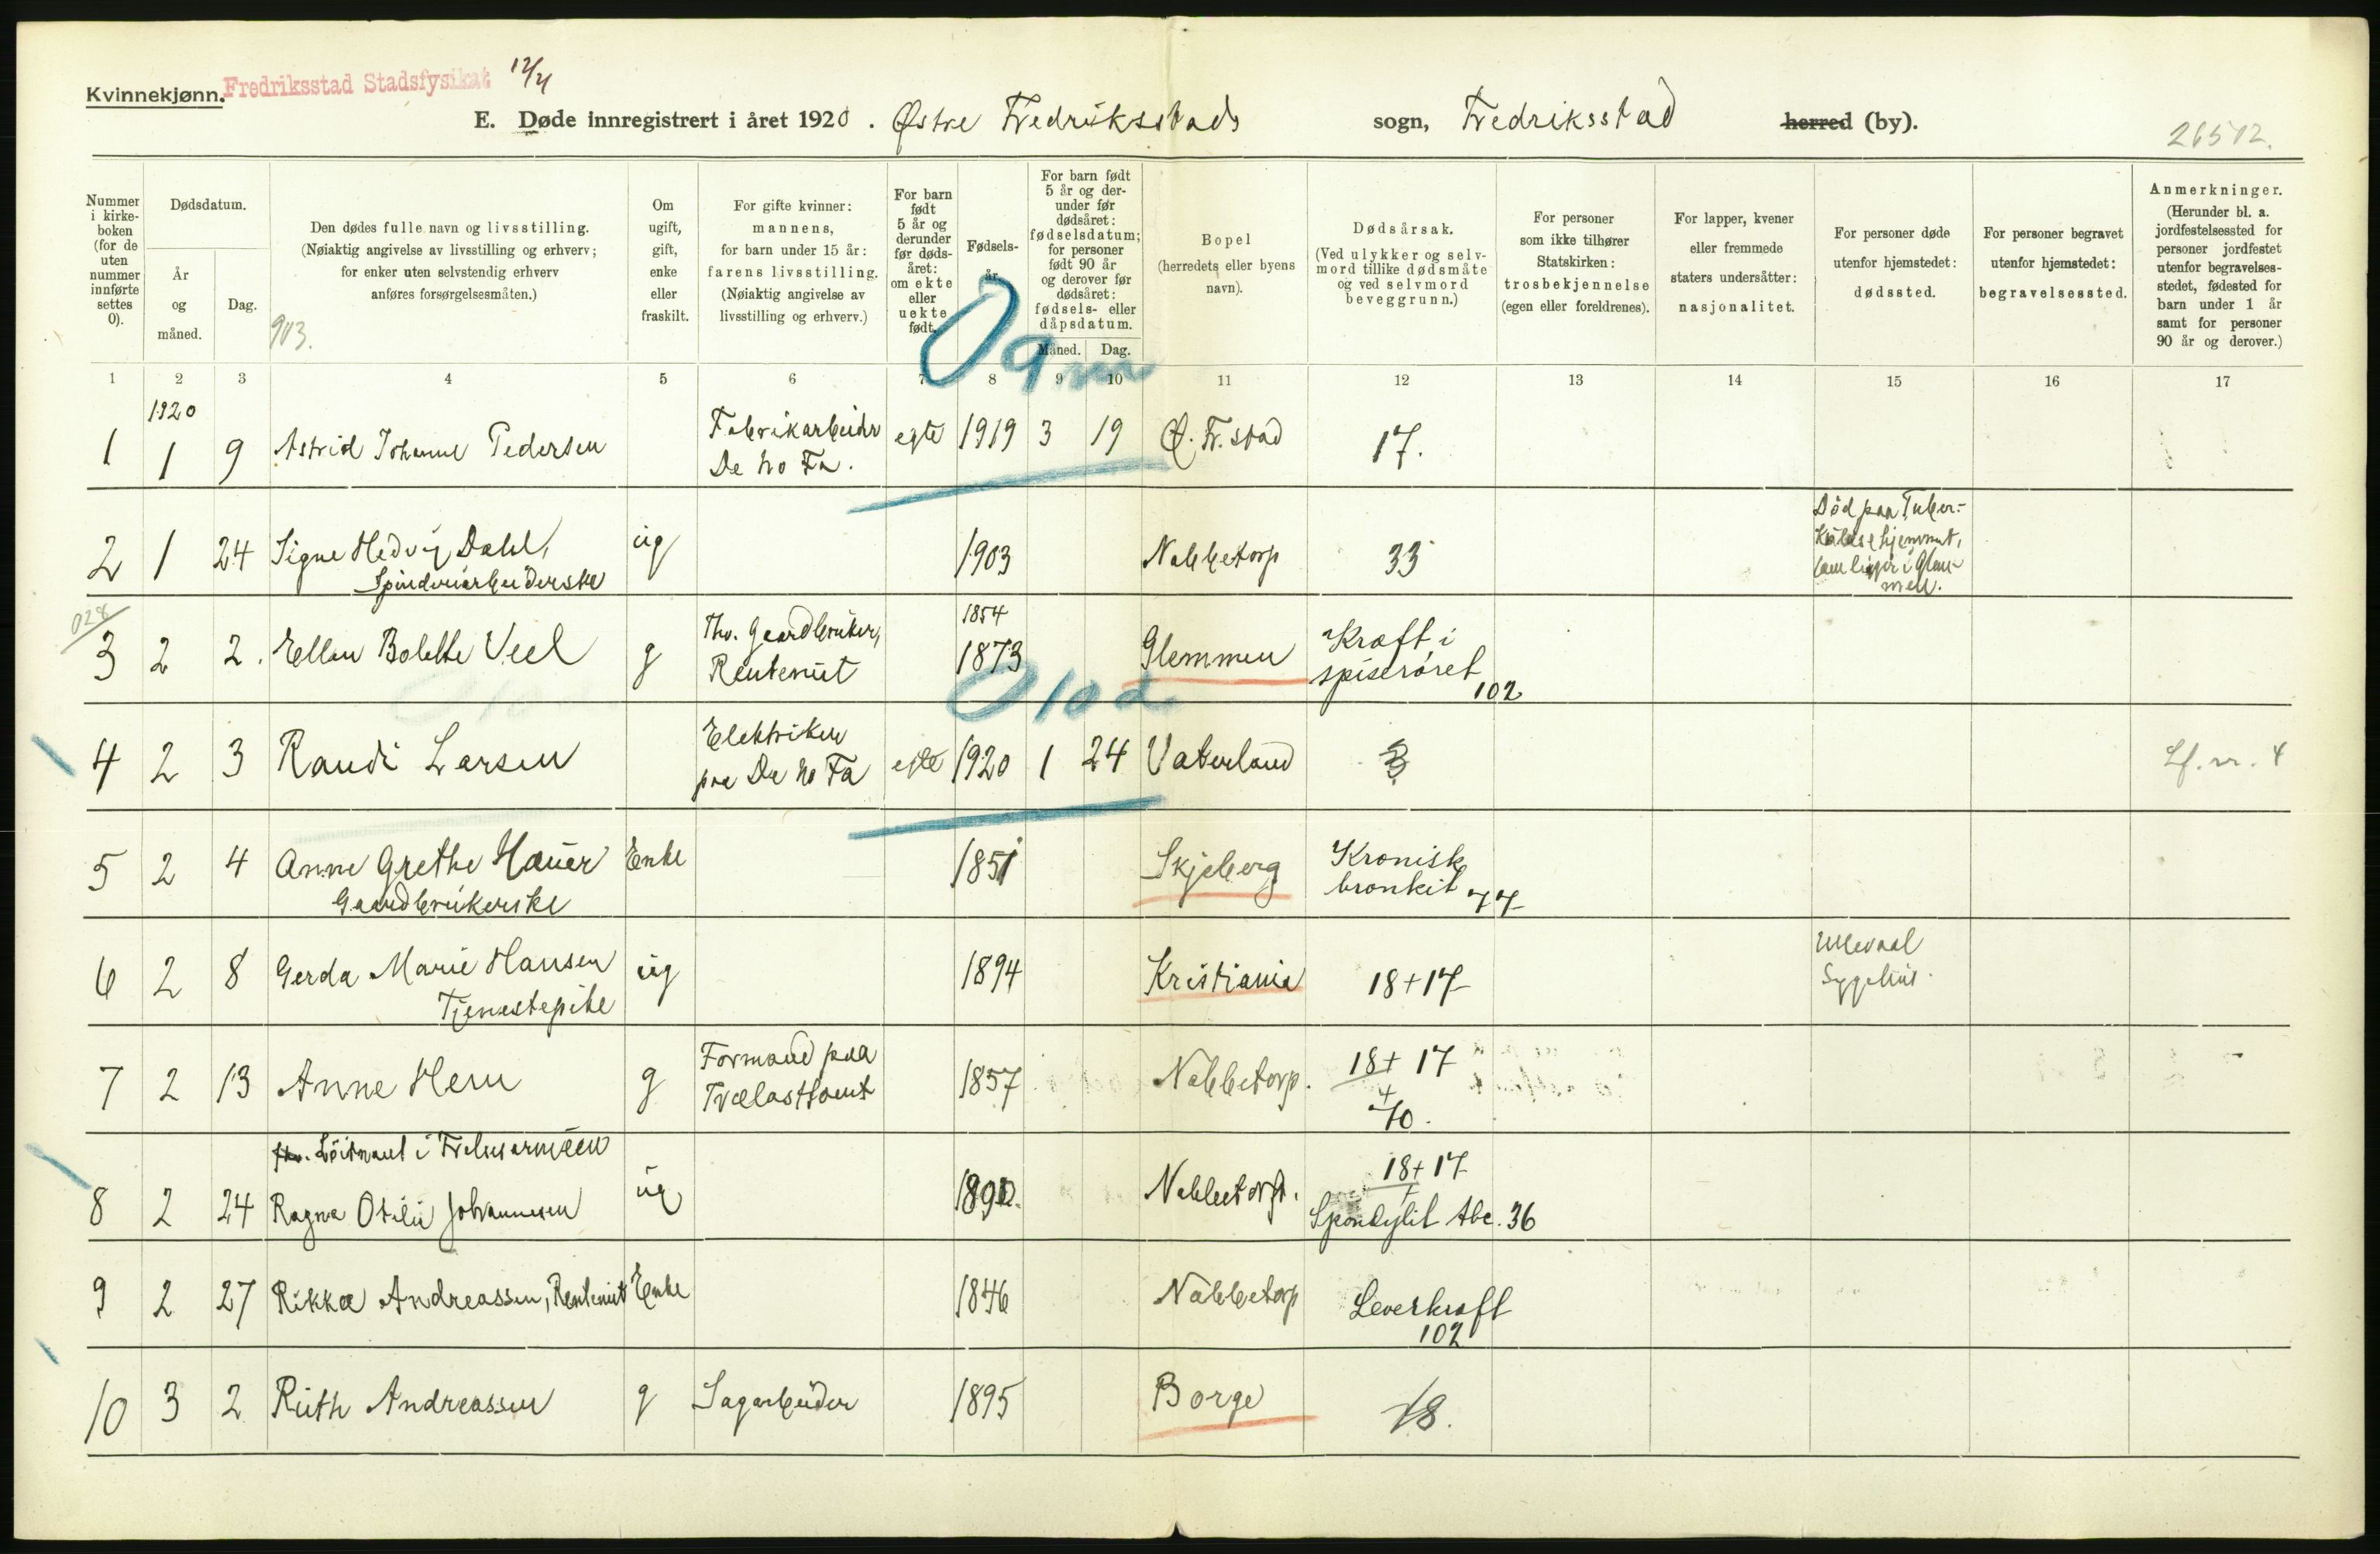 Kvinnekjønn. Fredriksstad Stadsfysikat 12/4
E. Døde innregistrert i året 1920. Østre Fredriksstads sogn, Fredriksstad herred (by).
26512.
Nummer i kirke- boken (for de uten nummer innførte settes 0).
Dødsdatum.
År og måned.
Dag.
Den dødes fulle navn og livsstilling.
(Nøiaktig angivelse av livsstilling og erhverv;
for enker uten selvstendig erhverv
anføres forsørgelsesmåten.)
903.
Om ugift, gift, enke eller fraskilt.
For gifte kvinner:
mannens,
for barn under 15 år:
farens livsstilling.
(Nøiaktig angivelse av
livsstilling og erhverv.)
For barn født 5 år og derunder før døds- året: om ekte eller uekte født.
Fødsels- år.
For barn født 5 år og der- under før dødsåret: fødselsdatum; for personer født 90 år og derover før dødsåret: fødsels- eller dåpsdatum.
Måned. Dag.
Bopel
(herredets eller byens
navn).
Dødsårsak.
(Ved ulykker og selv-
mord tillike dødsmåte
og ved selvmord
beveggrunn.)
For personer
som ikke tilhører
Statskirken:
trosbekjennelse
(egen eller foreldrenes).
For lapper, kvener
eller fremmede
staters undersåtter:
nasjonalitet.
For personer døde
utenfor hjemstedet:
dødssted.
For personer begravet
utenfor hjemstedet:
begravelsessted.
Anmerkninger.
(Herunder bl. a.
jordfestelsessted for
personer jordfestet
utenfor begravelses-
stedet, fødested for
barn under 1 år
samt for personer
90 år og derover.)
1 2 3 4 5 6 7 8 9 10 11 12 13 14 15 16 17
0 9 m
1920
1 1 9 Astrid Johanne Pedersen Fabrikarbeider
De No Fa. egte 1919 3 19 Ø. Fr. stad 17.
2 1 24 Signe Hedvig Dahl,
Spinderiarbeiderske ug 1903 Nabbetorp 33 Død paa Tuber-
kulosehjemmet,
som ligger i Glem-
men.
028
3 2 2. Ellen Bolette Veel g Fhv. Gaardbruker,
Rentenist 1854
1873 Glemmen Kræft i
spiserøret
102
0 10 d
4 2 3 Randi Larsen Elektriker
paa De No Fa egte 1920 1 24 Vaterland 3 Lf. nr. 4
5 2 4 Anne Grethe Hauer
Gaardbrukerske Enke 1851 Skjeberg Kronisk
bronkit 77
6 2 8 Gerda Marie Hansen
Tjenestepike ug 1894 Kristiania 18+17 Ullevaal
Sygehus.
7 2 13 Anne Hern g Formand paa
Trælasttomt 1857 Nabbetorp. 18+17
+
70.
fhv. Løitnant i Frelsesarmeen
8 2 24 Ragna Otilie Johannesen ug 1892. Nabbetorp. 18+17
+
Spondylit tbc. 36
9 2 27 Rikka Andreassen, Rentenist Enke 1846 Nabbetorp Leverkræft
102
10 3 2 Ruth Andreassen g Sagarbeider 1895 Borge 18.